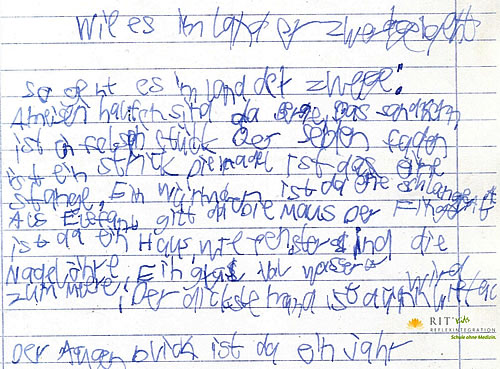 wie es im land er zwerge geht
so geht es im land der zwege:
Ameisen haufen sind da berge, das sandkorn
ist ein felsen stück der seiden faden
ist ein strick die nadel ist das eine
stange, Ein würmlein ist da eine schlange
Als Elefant gilt da die Maus Der Fingerhut
ist da ein Haus, wie fenster sind die
Nadelöhre, Ein glas vol wasser wird
zum mere, Der dickste ist dünn
Der Augen blick ist da ein jahr
RIT kids
REFLEXINTEGRATION
Schule ohne Medizin.